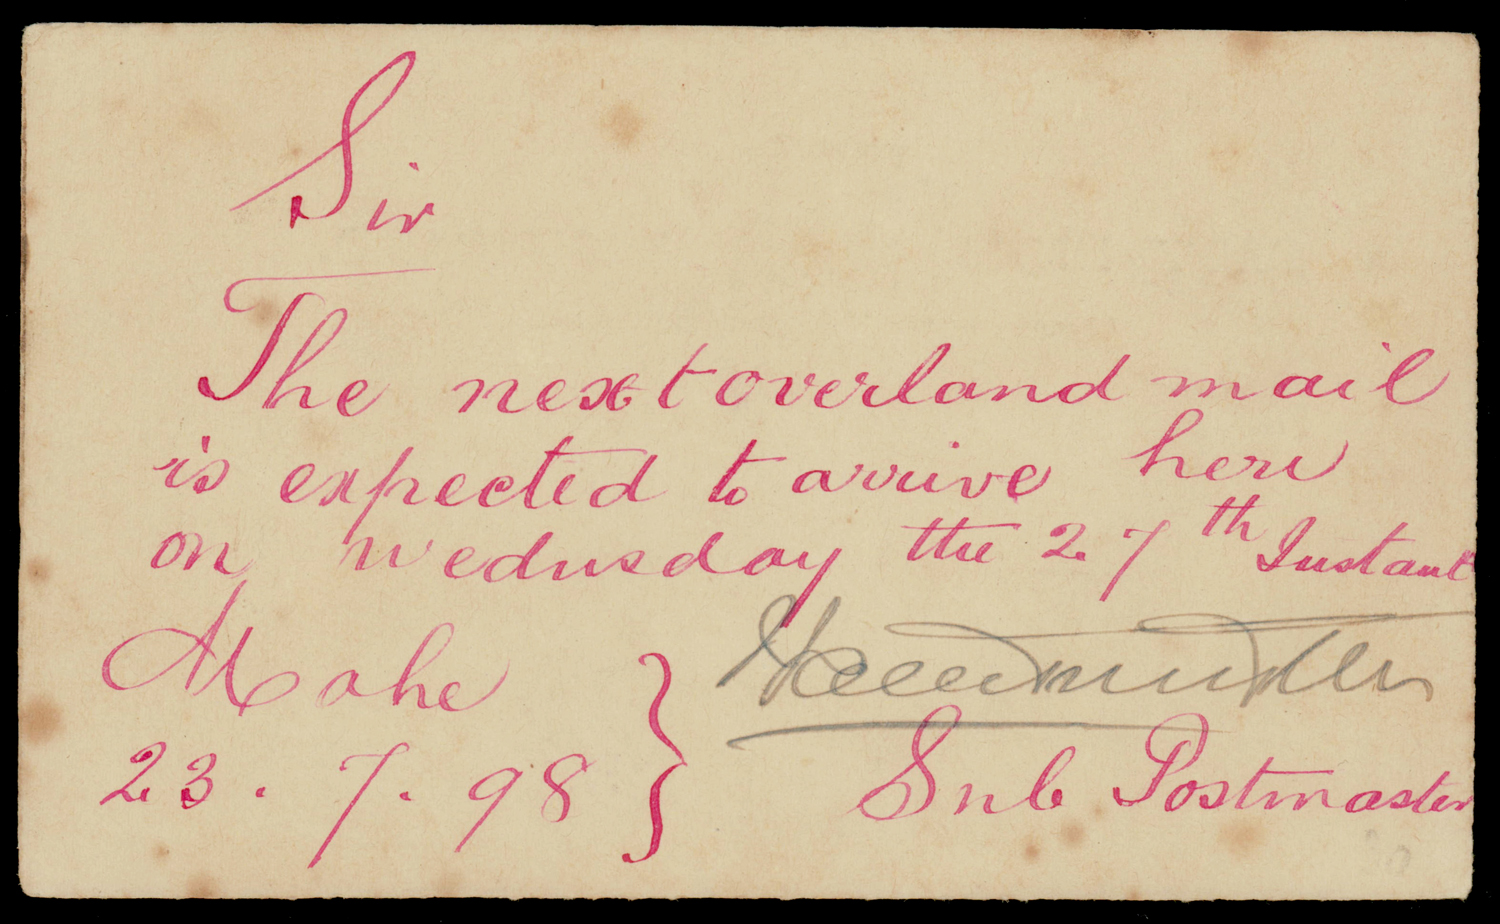 Sir
The next overland mail
is expected to arrive here
on wednesday the 27th Instant
Mahe
23. 7. 98
Sub Postmaster